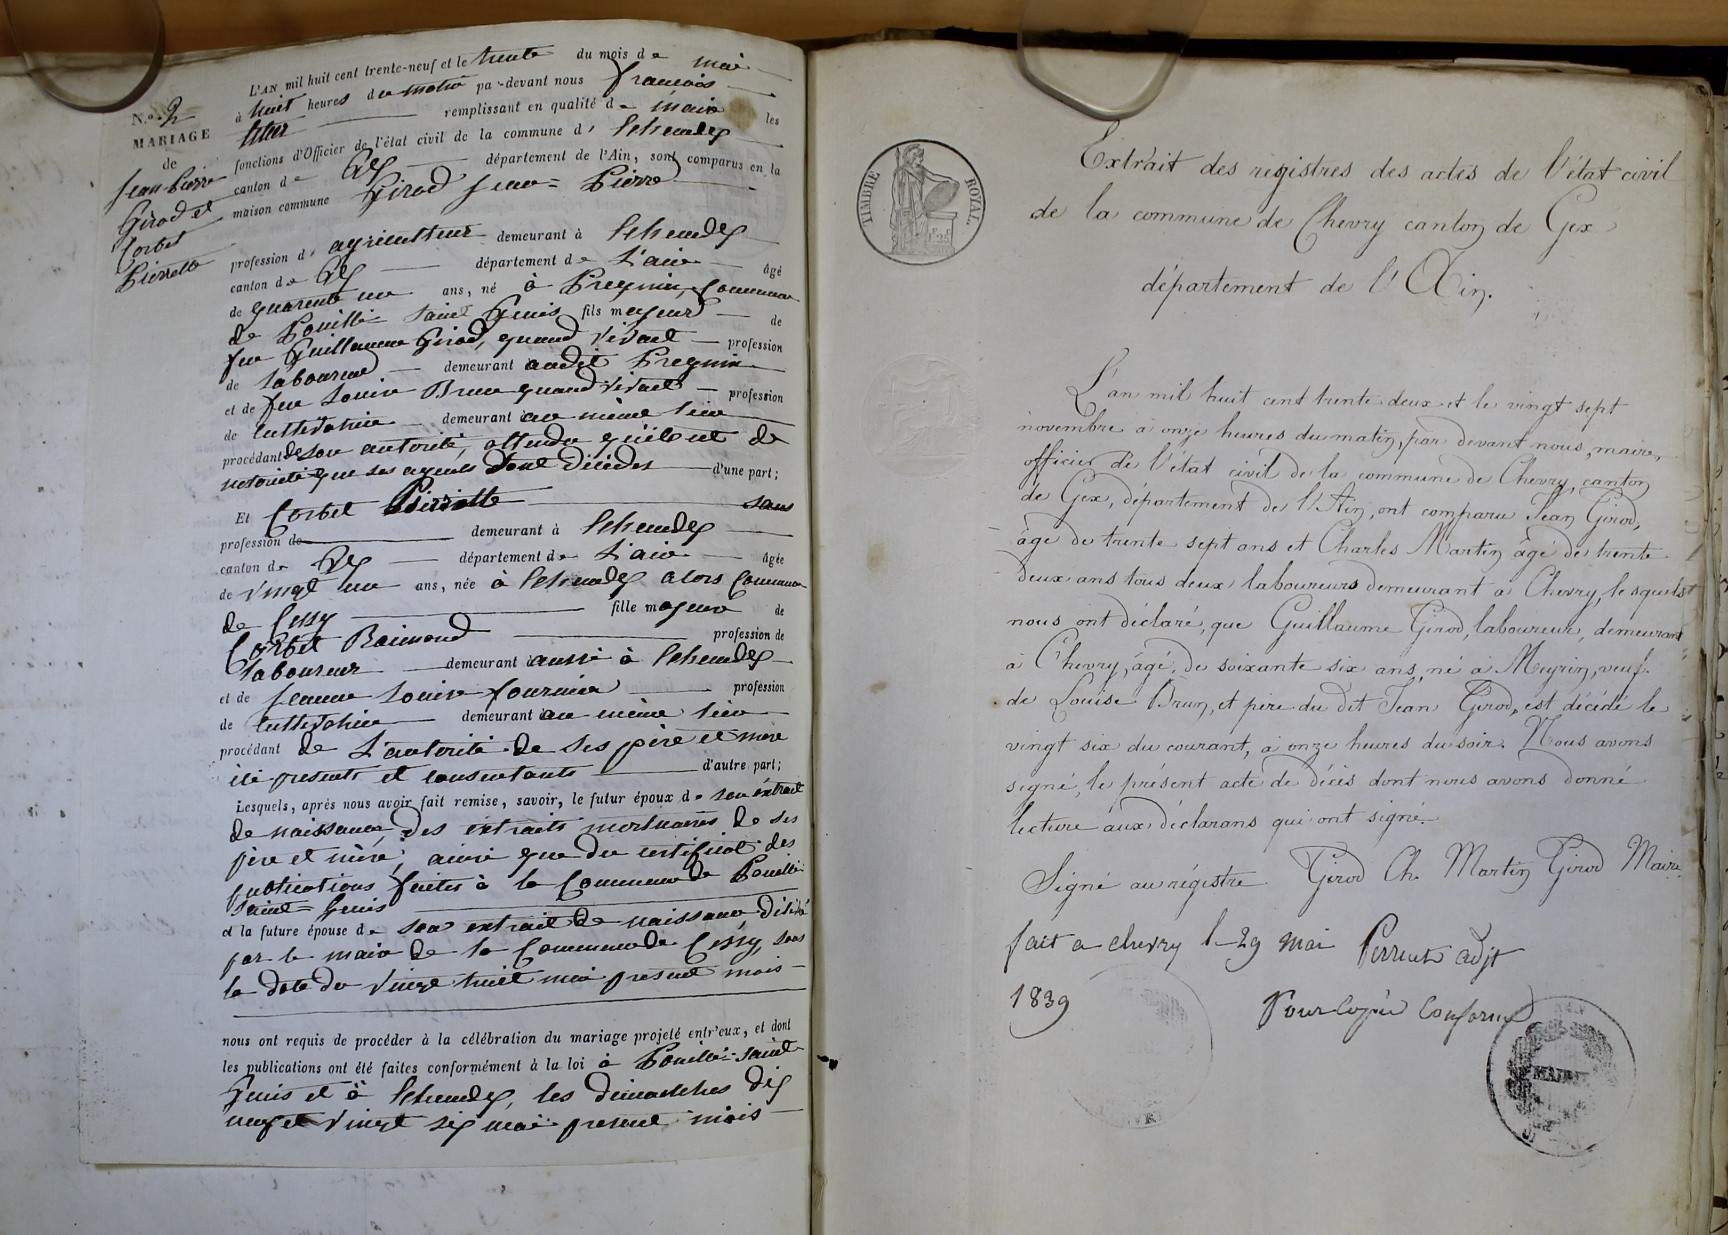 N.o 2
MARIAGE
de
Jean-Pierre
Girod et
Corbet
Pierrette
L'AN mil huit cent trente-neuf et le trente du mois de mai
à huit heures du matin par-devant nous françois
remplissant en qualité de maire les
fonctions d'Officier de l'état civil de la commune d' Echenevex
canton de Gex département de l'Ain, sont comparus en la
maison commune Girod Jean-Pierre
profession d' agriculteur demeurant à Echenevex
canton de Gex département de L'ain âgé
de quarente un ans, né à Pregnin, Commune
de Pouilli-Saint Genis fils majeur de
feu Guillaume Girod, quand vivait profession
de laboureur demeurant audit Pregnin
et de feue Louise Brun quand vivait profession
de cultivatrice demeurant au même lieu
procédant de son autorité, attendu qu'il est de
notoriété que ses ayeuls sont décédés d'une part;
Et Corbet Pierrette sans
profession de demeurant à Echenevex
canton de Gex département de L'ain âgée
de vingt un ans, née à Echenevex alors Commune
de Cessy fille majeure de
Corbet Raimond profession de
laboureur demeurant aussi à Echenevex
et de Jeanne Louise fournier profession
de cultivatrice demeurant au même lieu
procédant de L'autorité de ses père et mère
ici présents et consentants d'autre part;
Lesquels, après nous avoir fait remise, savoir, le futur époux de son extrait
de naissance, des extraits mortuaires de ses
père et mère, ainsi que du certificat des
publications faites à la Commune de Pouilli-
Saint-Genis
et la future épouse de son extrait de naissance délivré
par le maire de la Commune de Cessy, sous
la date du vingt huit mai présent mois
nous ont requis de procéder à la célébration du mariage projeté entr'eux, et dont
les publications ont été faites conformément à la loi à Pouilli-Saint
Genis et à Echenevex, les dimanches dix
neuf et vingt six mai présent mois
TIMBRE ROYAL
Extrait des registres des actes de l'état civil
de la commune de Chevry canton de Gex
département de l'Ain.
L'an mil huit cent trente deux et le vingt sept
novembre à onze heures du matin, par devant nous, maire,
officier de l'état civil de la commune de Chevry, canton
de Gex, département de l'Ain, ont comparu Jean Girod,
âgé de trente sept ans et Charles Martin âgé de trente
deux ans tous deux laboureurs demeurant à Chevry, lesquels
nous ont déclaré, que Guillaume Girod, laboureur, demeurant
à Chevry, âgé, de soixante six ans, né à Meyrin, veuf
de Louise Brun, et père du dit Jean Girod, est décédé le
vingt six du courant, à onze heures du soir. Nous avons
signé, le présent acte de décès dont nous avons donné
lecture aux déclarans qui ont signé.
Signé au régistre Girod Ch. Martin Girod Maire
fait a chevry le 29 mai Perrout adjt
1839 Pour Copie Conforme
MAIRIE